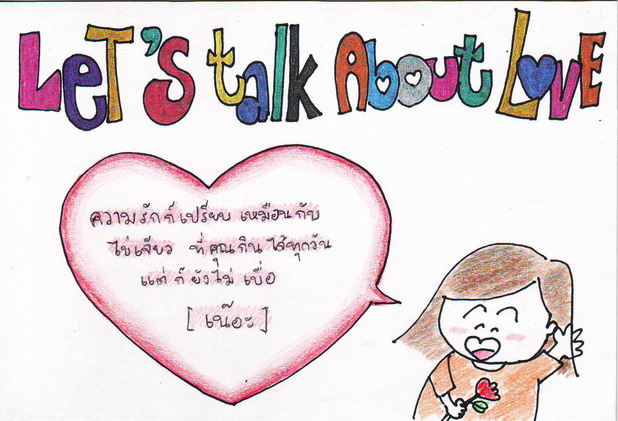 LeT'S talk About LOVE
ความรักก็เปรียบ เหมือนกับ
ไข่เจียว ที่คุณกินได้ทุกวัน
แต่ก็ยังไม่ เบื่อ
[ เน๊อะ ]